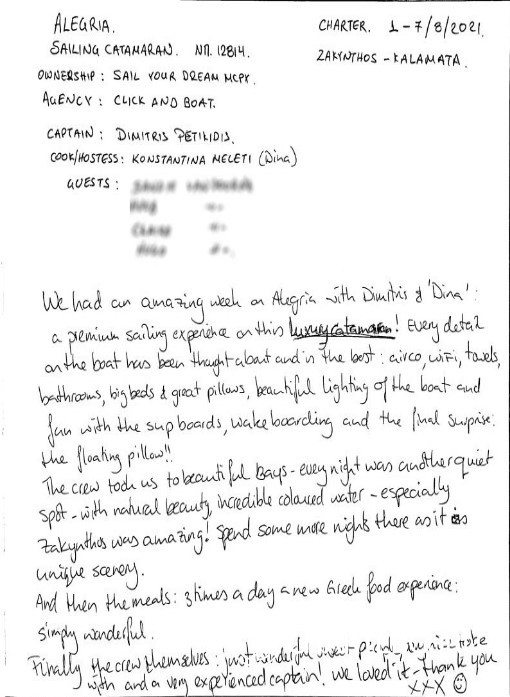 ALEGRIA.
SAILING CATAMARAN. NΠ. 12814.
OWNERSHIP: SAIL YOUR DREAM MCPY.
AGENCY: CLICK AND BOAT.
CHARTER. 1-7/8/2021.
ZAKYNTHOS - KALAMATA.
CAPTAIN: DIMITRIS PETILIDIS.
COOK/HOSTESS: KONSTANTINA MELETI (Dina)
GUESTS:
We had an amazing week on Alegria with Dimitris & 'Dina':
a premium sailing experience on this luxury catamaran! Every detail
on the boat has been thought about and is the best: airco, wifi, towels,
bathrooms, big beds & great pillows, beautiful lighting of the boat and
fun with the supboards, wakeboarding and the final surprise:
the floating pillow!!
The crew took us to beautiful bays - every night was another quiet
spot - with natural beauty, incredible coloured water - especially
Zakynthos was amazing! Spend some more nights there as it is
unique scenery.
And then the meals: 3 times a day a new Greek food experience:
simply wonderful.
Finally the crew themselves: just wonderful
with and a very experienced captain! We loved it - thank you
XXX ☺